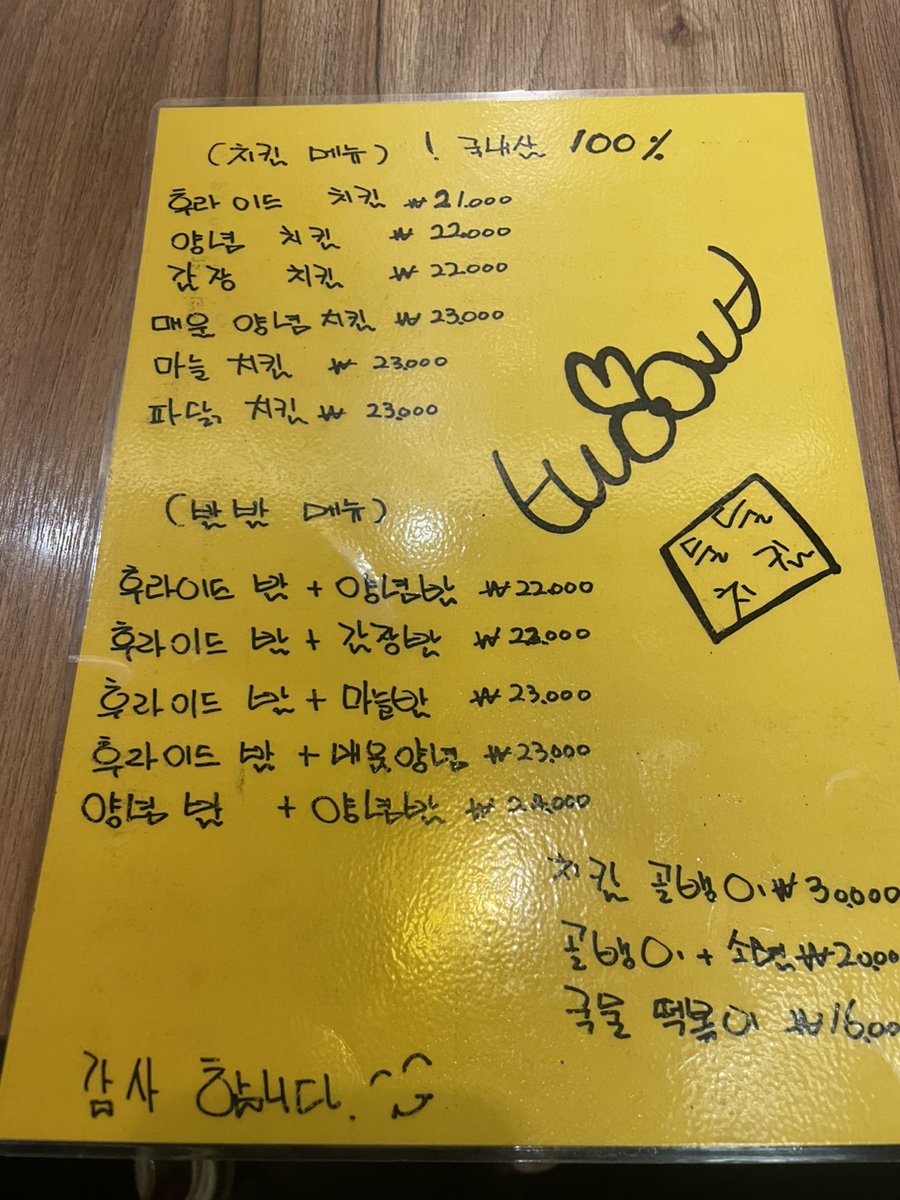 (치킨 메뉴) ! 국내산 100%
후라이드 치킨 ₩21.000
양념 치킨 ₩ 22.000
간장 치킨 ₩ 22.000
매운 양념 치킨 ₩ 23.000
마늘 치킨 ₩ 23.000
파닭 치킨 ₩ 23.000
(반반 메뉴)
후라이드 반 + 양념반 ₩22.000
후라이드 반 + 간장반 ₩22.000
후라이드 반 + 마늘반 ₩23.000
후라이드 반 + 매운양념 ₩23.000
양념 반 + 양념반
치킨 골뱅이 ₩30,000
골뱅이 + 소면 ₩20,00
국물 떡볶이 ₩16,00
감사 합니다.